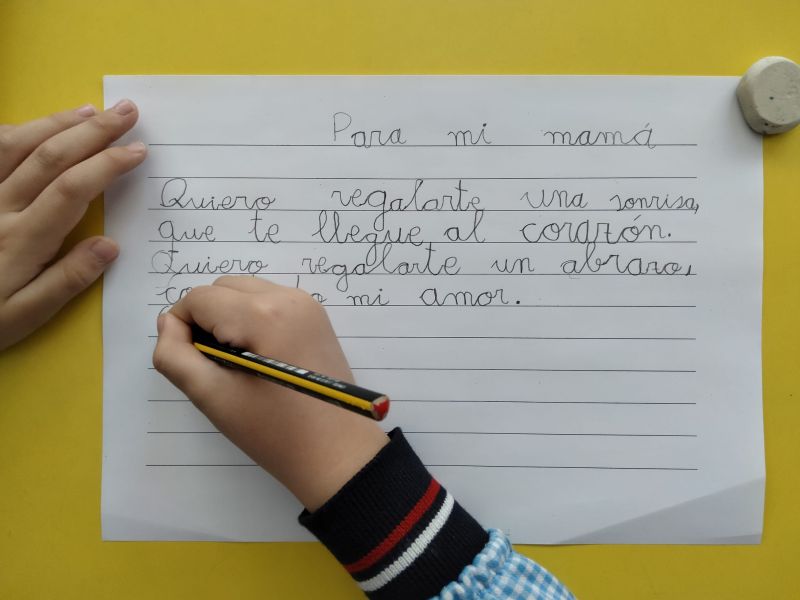 Para mi mamá
Quiero regalarte una sonrisa,
que te llegue al corazón.
Quiero regalarte un abrazo,
mi amor.